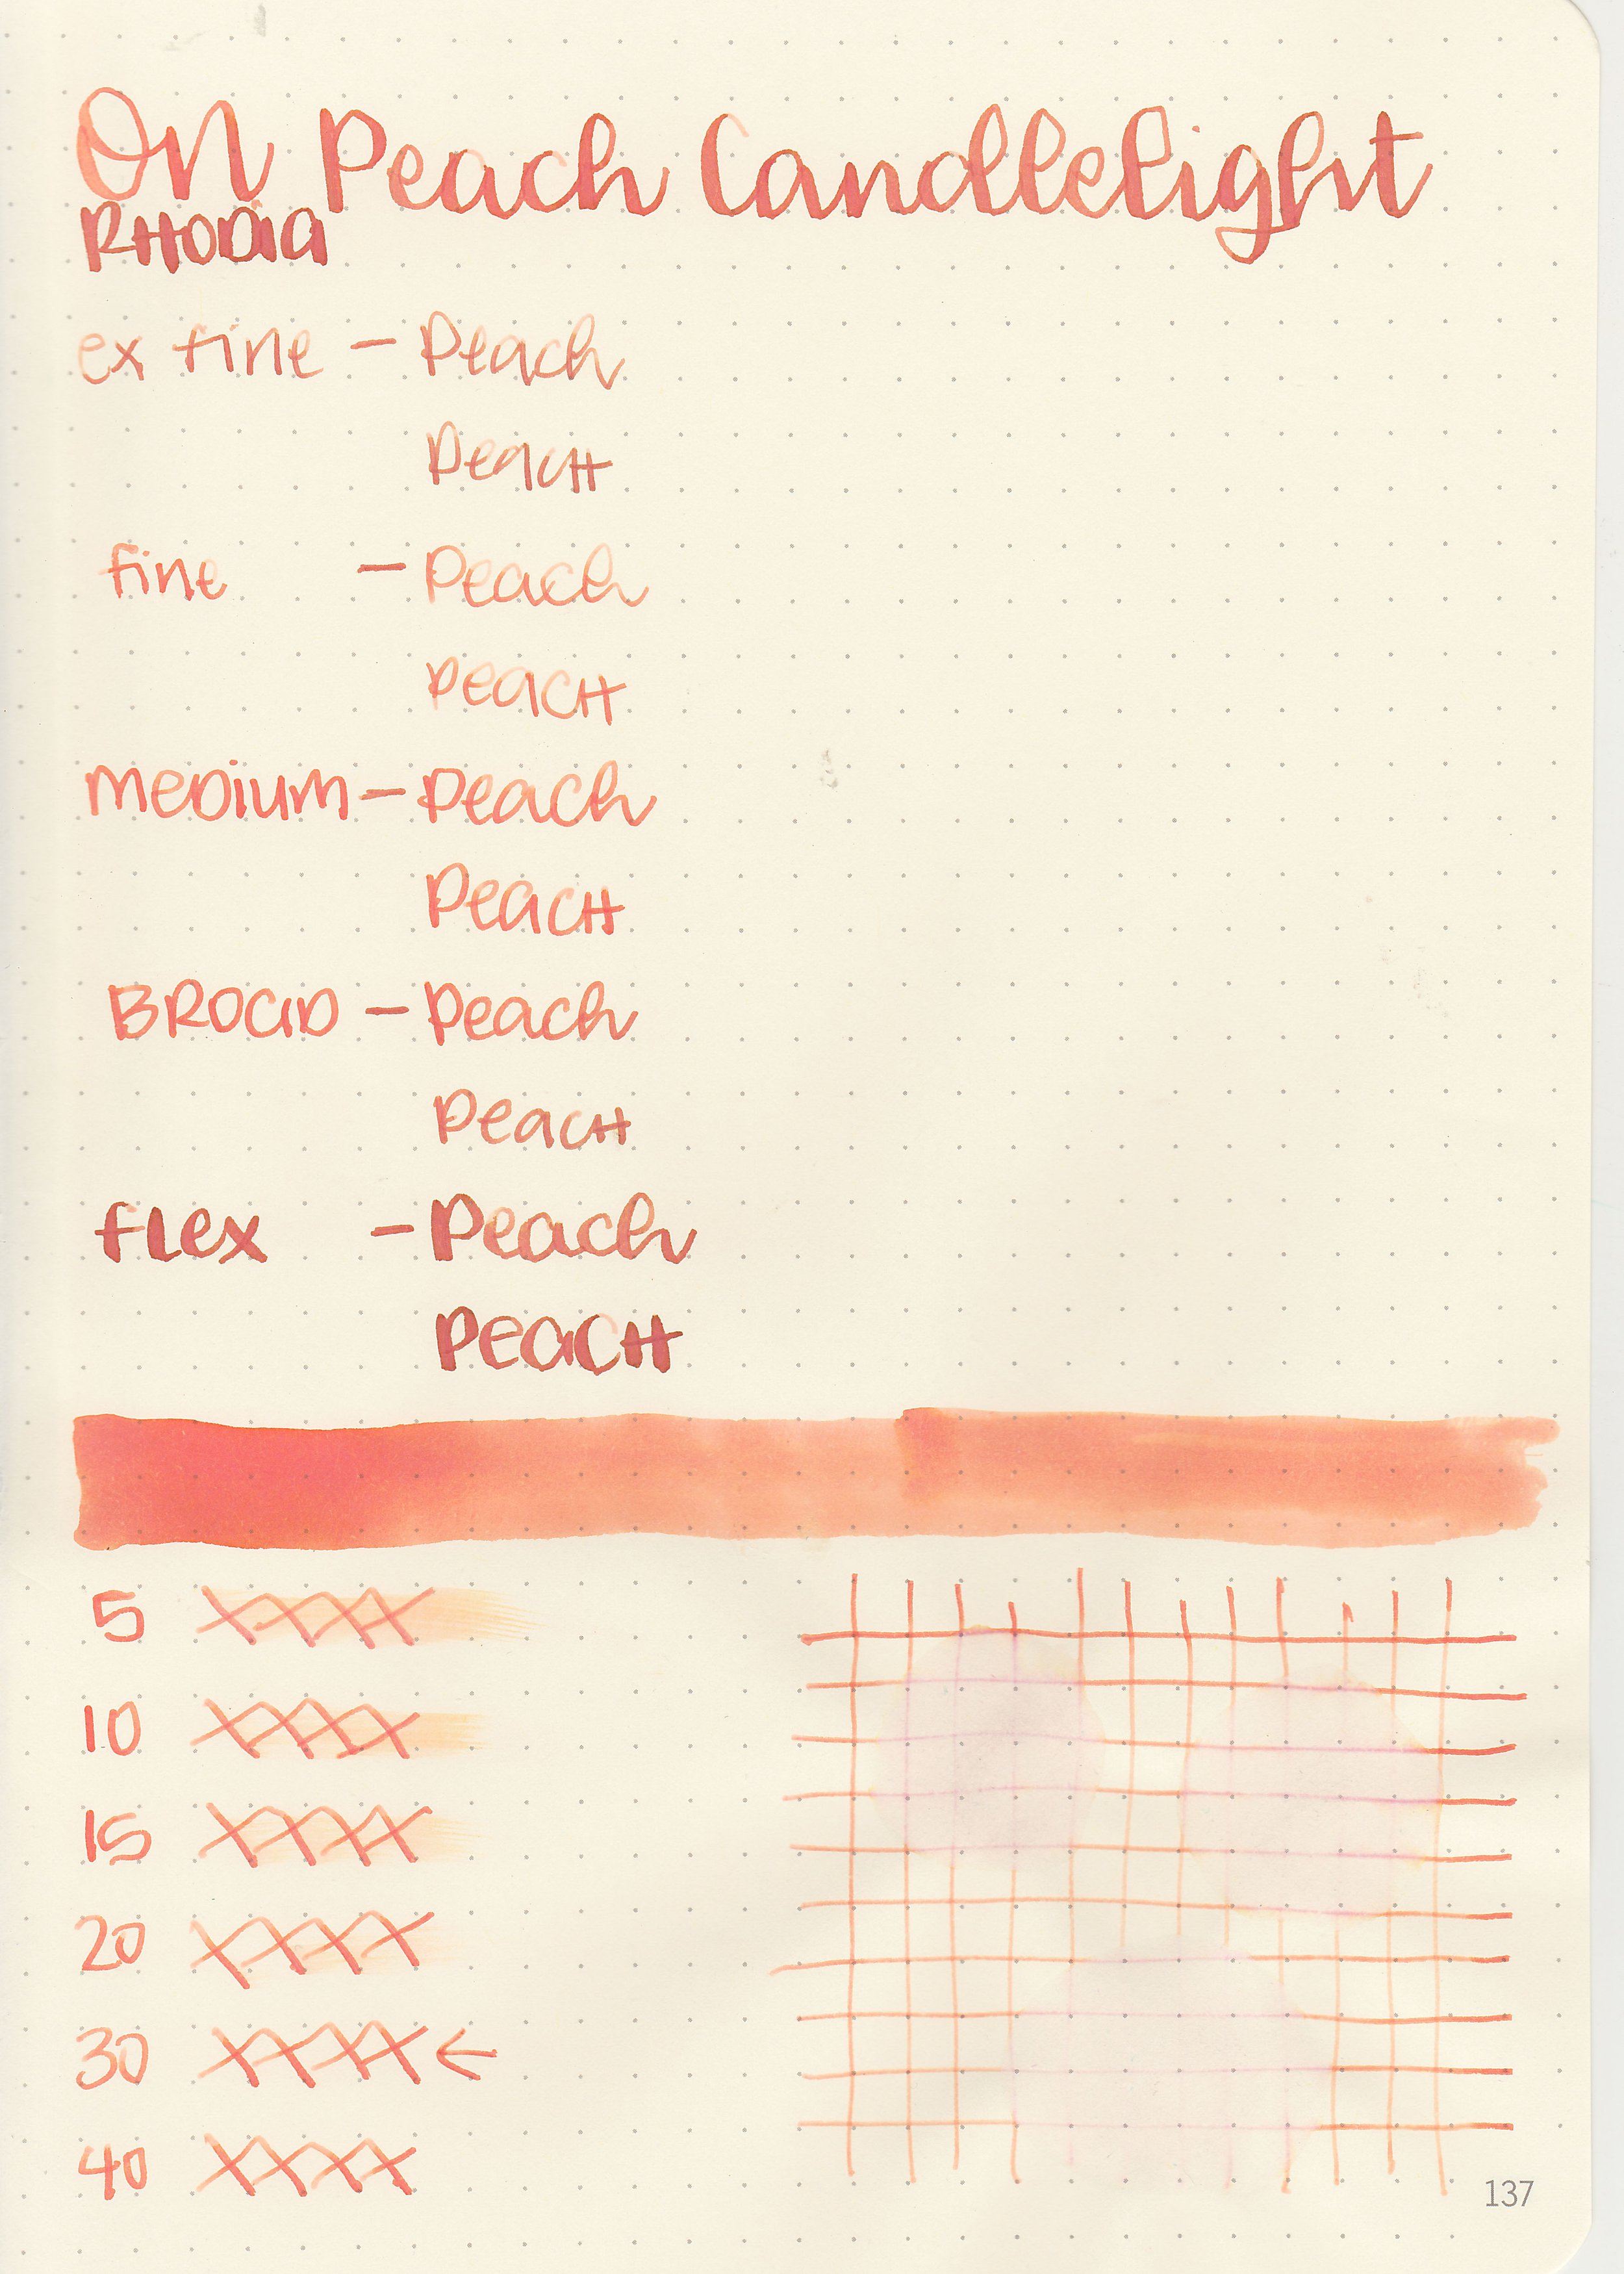 On Peach Candlelight
RHODIA
ex fine - Peach
PeacH
fine - Peach
PeacH
MeDium - Peach
PeacH
BROaD - Peach
PeacH
fLex - Peach
PeacH
5 XXXX
10 XXXX
15 XXXX
20 XXXX
30 XXXX ←
40 XXXX
137